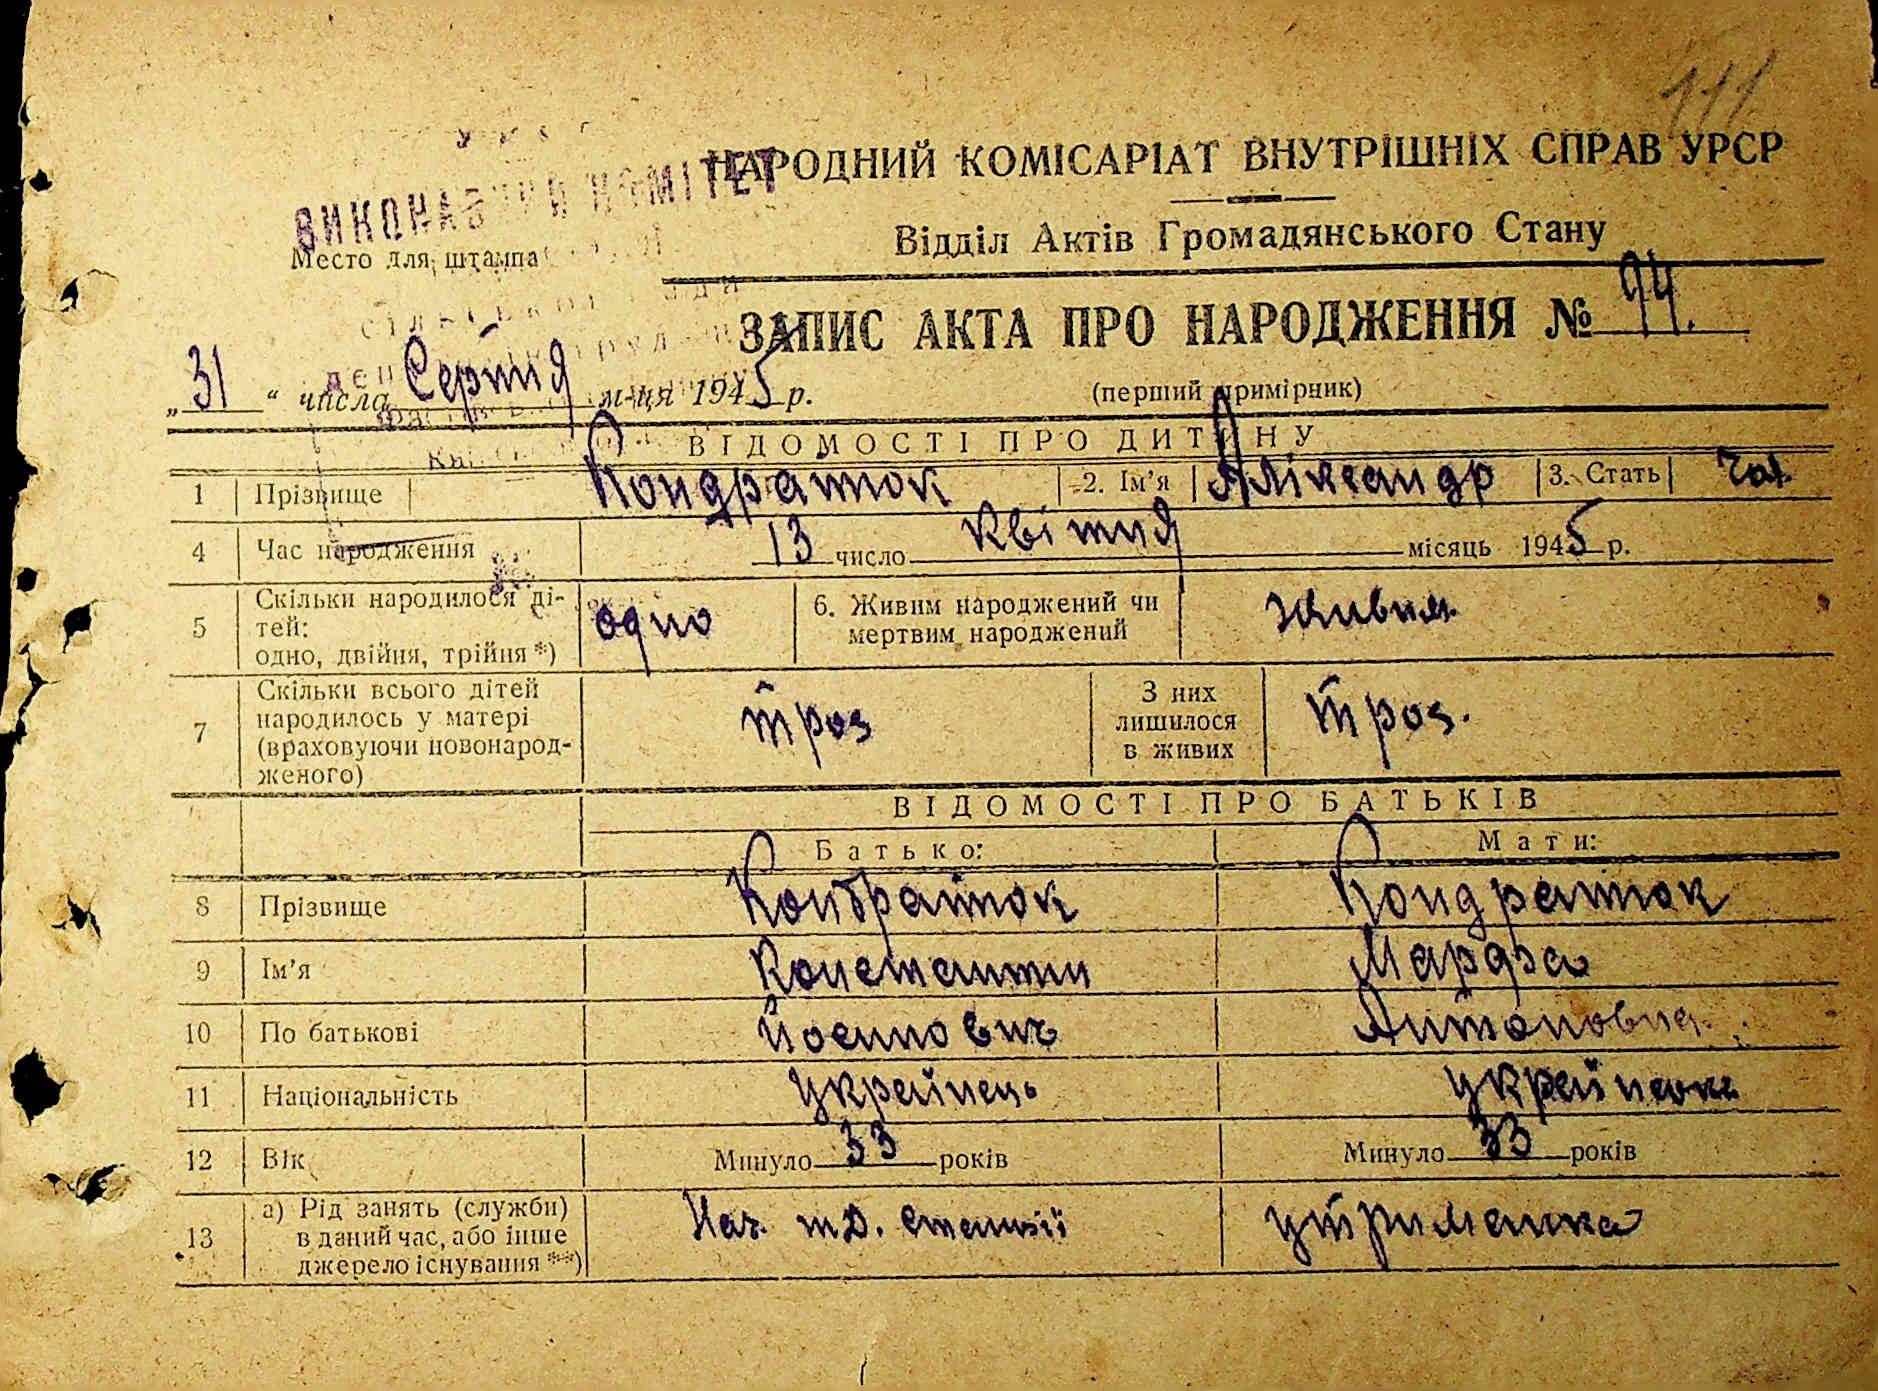 111
НАРОДНИЙ КОМІСАРІАТ ВНУТРІШНІХ СПРАВ УРСР
ВИКОНАВЧИЙ КОМІТЕТ
Відділ Актів Громадянського Стану
Место для штампа
ЗАПИС АКТА ПРО НАРОДЖЕННЯ № 94.
„31“ числа Серпня м-ця 1945 р. (перший примірник)
ВІДОМОСТІ ПРО ДИТИНУ
1 Прізвище Кондратюк 2. Ім'я Александр 3. Стать чол.
4 Час народження 13 число Квітня місяць 1945 р.
5 Скільки народилося ді-
тей:
одно, двійня, трійня *) одно 6. Живим народжений чи
мертвим народжений живим
7 Скільки всього дітей
народилось у матері
(враховуючи новонарод-
женого) троє З них
лишилося
в живих троє.
ВІДОМОСТІ ПРО БАТЬКІВ
Батько: Мати:
8 Прізвище Кондратюк Кондратюк
9 Ім'я Константин Марфа
10 По батькові Йосипович Антоновна
11 Національність українець українка
12 Вік Минуло 33 років Минуло 33 років
13 а) Рід занять (служби)
в даний час, або інше
джерело існування **) Нач. станції утриманка